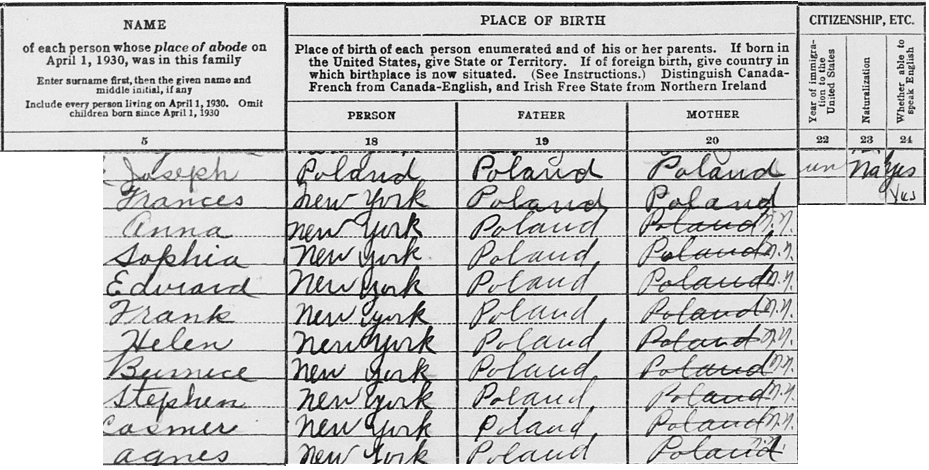 NAME
of each person whose place of abode on
April 1, 1930, was in this family
Enter surname first, then the given name and
middle initial, if any
Include every person living on April 1, 1930. Omit
children born since April 1, 1930
5
PLACE OF BIRTH
Place of birth of each person enumerated and of his or her parents. If born in
the United States, give State or Territory. If of foreign birth, give country in
which birthplace is now situated. (See Instructions.) Distinguish Canada-
French from Canada-English, and Irish Free State from Northern Ireland
PERSON FATHER MOTHER
18 19 20
CITIZENSHIP, ETC.
Year of immigra-
tion to the
United States
Naturalization
Whether able to
speak English
22 23 24
Joseph Poland Poland Poland un Na yes
Frances New York Poland Poland Yes
Anna New York Poland Poland N.Y.
Sophia New York Poland Poland N.Y.
Edward New York Poland Poland N.Y.
Frank New York Poland Poland N.Y.
Helen New York Poland Poland N.Y.
Bernice New York Poland Poland N.Y.
Stephen New York Poland Poland N.Y.
Casmer New York Poland Poland N.Y.
Agnes New York Poland Poland N.Y.